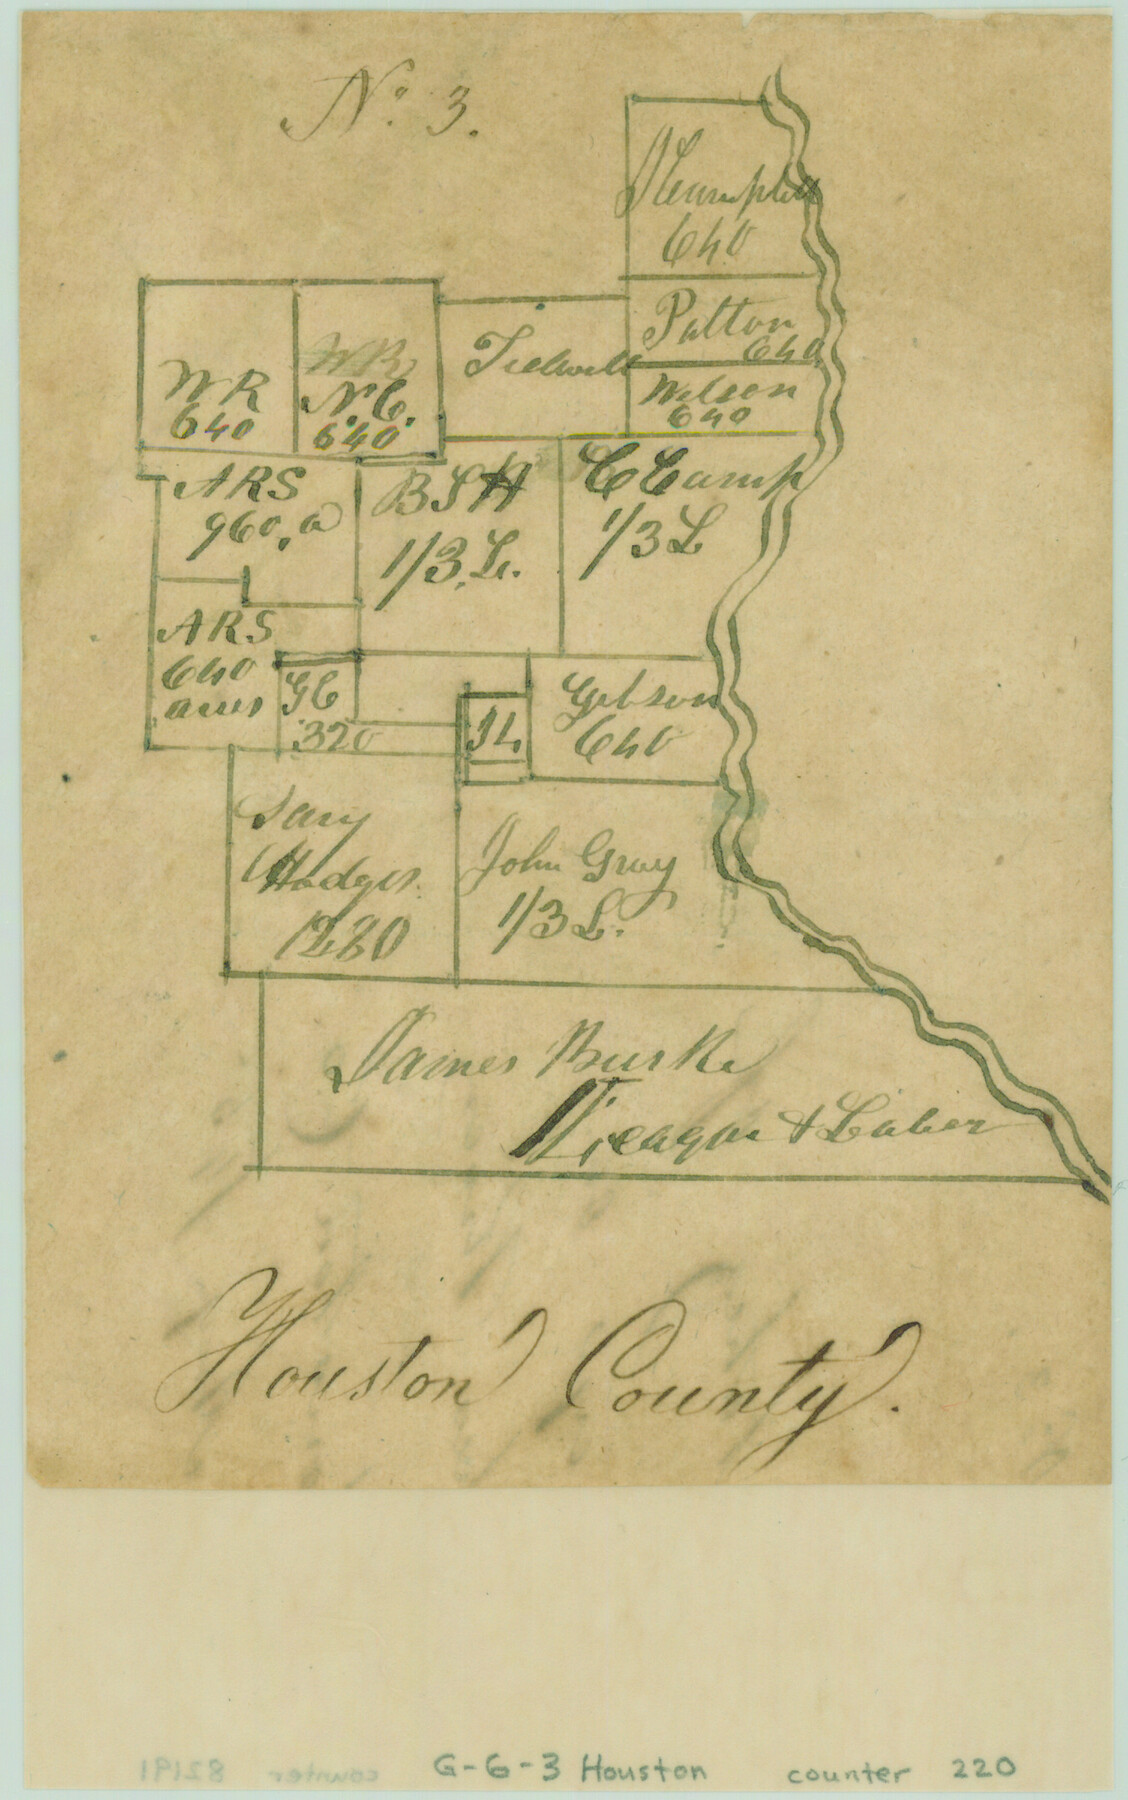 No. 3.
640
Patton
640
Wilson
640
Tidwell
WR
640
WR
N.C.
640
ARS
960.a
BSH
1/3.L.
C Camp
1/3 L
ARS
640
acres
GC
320
JL
Gibson
640
Hodges
1280
John Gray
1/3 L.
James Burke
League & Labor
Houston County.
G-6-3 Houston counter 220
counter 82191